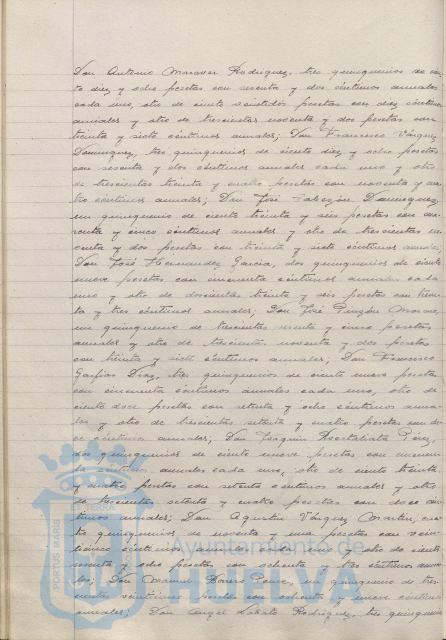 Don Antonio Maraver Rodríguez, tres quinquenios de cien-
to diez y ocho pesetas con sesenta y dos céntimos anuales
cada uno, otro de ciento veintidós pesetas con diez céntimos
anuales y otro de trescientas noventa y dos pesetas con
treinta y siete céntimos anuales; Don Francisco Vázquez
Domínguez, tres quinquenios de ciento diez y ocho pesetas
con sesenta y dos céntimos anuales cada uno y otro
de trescientas treinta y cuatro pesetas con noventa y cua-
tro céntimos anuales; Don José Domínguez,
un quinquenio de ciento treinta y seis pesetas con
y cinco céntimos anuales y otro de trescientas no-
venta y dos pesetas con treinta y siete céntimos anuales;
Don José Hernández García, dos quinquenios de ciento
nueve pesetas con cincuenta céntimos anuales cada
uno y otro de doscientas treinta y seis pesetas con trein-
ta y tres céntimos anuales; Don José Pinzón
un quinquenio de trescientas sesenta y cinco pesetas
anuales y otro de trescientas noventa y dos pesetas
con treinta y siete céntimos anuales; Don Francisco
Garfias Díaz, tres quinquenios de ciento nueve pesetas
con cincuenta céntimos anuales cada uno, otro de
ciento doce pesetas con setenta y ocho céntimos anua-
les y otro de trescientas setenta y cuatro pesetas con do-
ce céntimos anuales; Don Joaquín Pérez,
dos quinquenios de ciento nueve pesetas con cincuen-
ta céntimos anuales cada uno, otro de ciento treinta
y cuatro pesetas con setenta céntimos anuales y otro
de trescientas setenta y cuatro pesetas con doce cén-
timos anuales; Don Agustín Vázquez Martín, cua-
tro quinquenios de noventa y una pesetas con vein-
ticinco céntimos anuales cada uno y otro de ciento
sesenta y ocho pesetas con ochenta y tres céntimos anua-
les; Don Manuel Romero Ponce, un quinquenio de tres-
cientas veintinueve pesetas con ochenta y nueve céntimos
anuales; Don Angel Lobato Rodríguez, tres quinquenios
PORTUS MARIS ET TERRAE
Ayuntamiento de
HUELVA